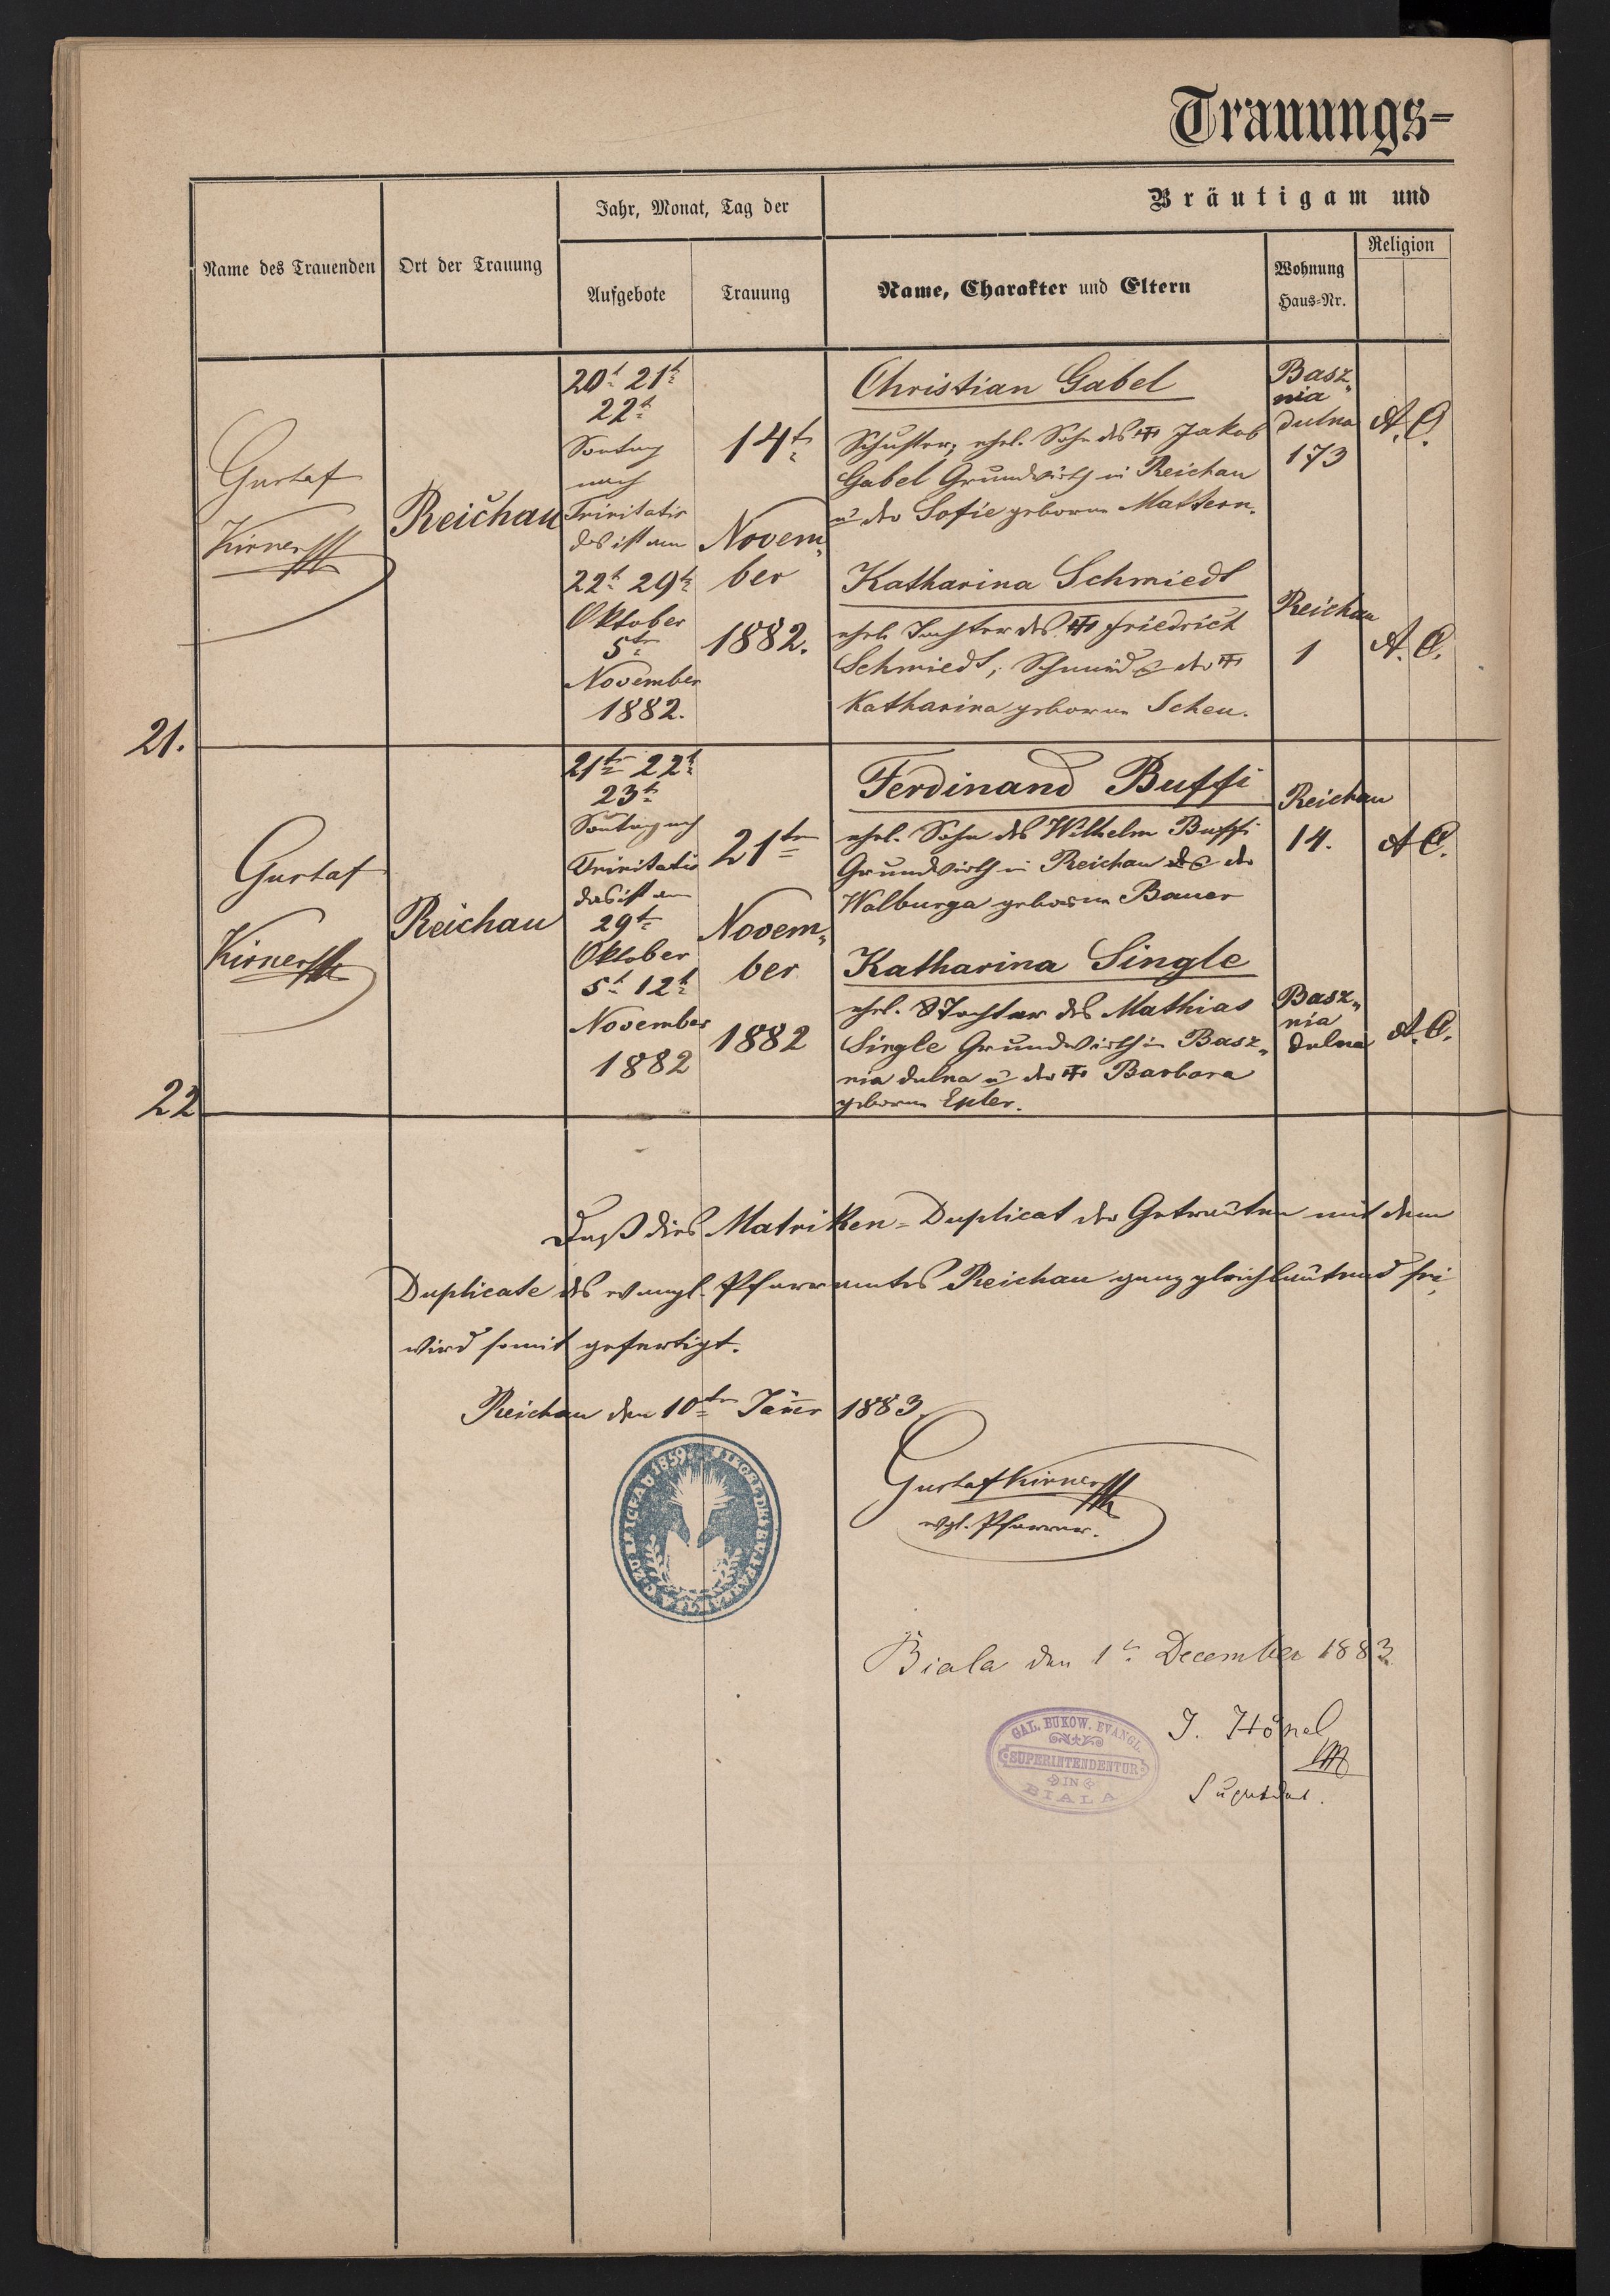 Trauungs-
Bräutigam und
Jahr, Monat, Tag der
Name des Trauenden
Ort der Trauung
Aufgebote
Trauung
Name, Charakter und Eltern
Wohnung
Haus-Nr.
Religion
21.
Gustaf
Kirner
Reichau
20t 21t
22t
Sontag
nach
Trinitatis
das ist am
22t 29t
Oktober
5te
November
1882.
14t
Novem„
ber
1882.
Christian Gabel
Schuster, ehel. Sohn des Jakob
Gabel Grundwirth in Reichau
u der Sofie geborne Mattern.
Basz„
nia
dulna
173
A. C.
Katharina Schmiedt
ehel. Tochter des Friedrich
Schmiedt, Schmied der
Katharina geborne Scheu.
Reichau
1
A. C.
22
Gustaf
Kirner
Reichau
21te 22t
23t
Sontag nach
Trinitatis
das ist am
29t
Oktober
5t 12t
November
1882
21te
Novem„
ber
1882
Ferdinand Buffi
ehel. Sohn des Wilhelm Buffi
Grundwirth in Reichau der
Walburga geborne Bauer
Reichau
14.
A C.
Katharina Single
ehel. Tochter des Mathias
Single Grundwirth in Basz„
nia dulna u der Barbara
geborne Exler.
Basz„
nia
dulna
A. C.
Daß dies Matriken-Duplicat der Getrauten mit dem
Duplicate des evangl. Pfarramtes Reichau ganz gleichlautend sei,
wird somit gefertigt.
Reichau den 10ten Jäner 1883.
Gustaf Kirner
evgl. Pfarrer.
Biala den 1t December 1883
GAL. BUKOW. EVANGL.
SUPERINTENDENTUR
IN
BIALA
J. Hönel